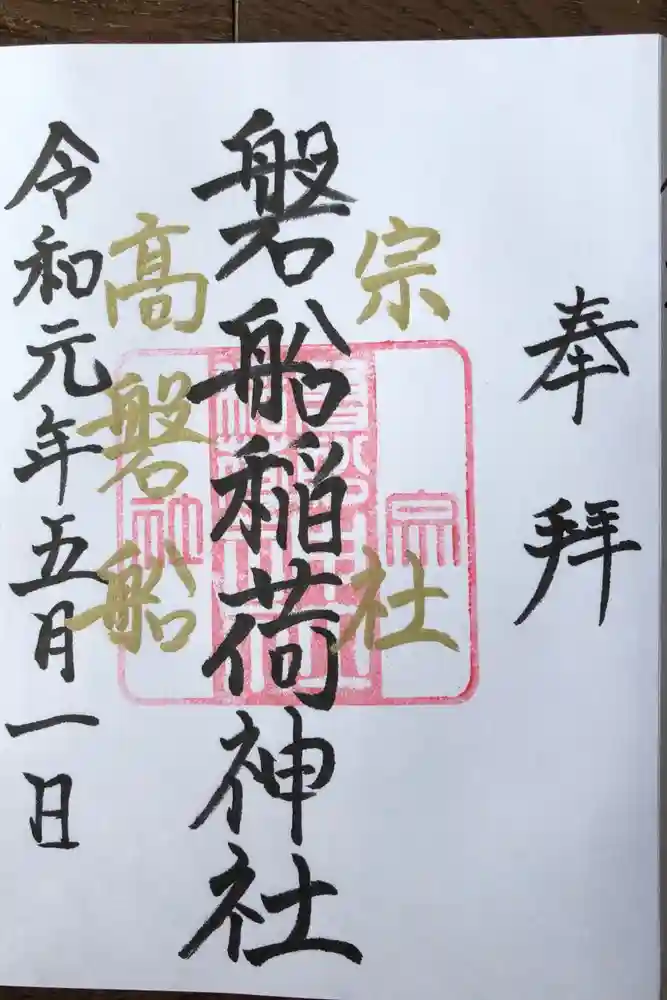 奉拝
宗社
磐船稲荷神社
高磐船
令和元年五月一日